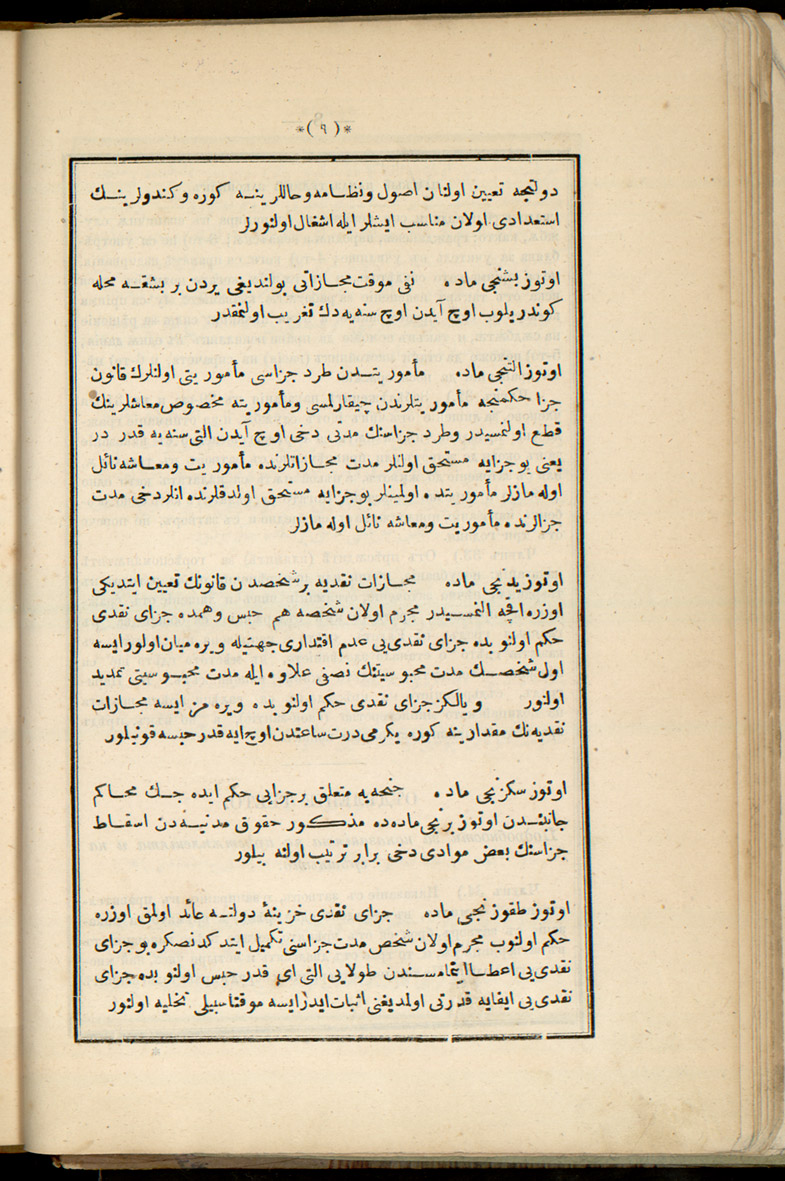 *(٩)*
دولتجه تعیین اولنان اصول ونظامه وحاللرینه کوره وکندولرینك
استعدادی اولان مناسب ایشلر ایله اشغال اولنورلر
اوتوز بشنجی ماده نفی موقت مجازاتی بولندیغی یردن بر بشقه محله
کوندریلوب اوچ آیدن اوچ سنه یه دك تغریب اولنمقدر
اوتوز التنجی ماده مأموریتدن طرد جزاسی مأموریتی اولنلرك قانون
جزا حکمنجه مأموریتلرندن چیقارلمسی ومأموریته مخصوص معاشلرینك
قطع اولنمسیدر وطرد جزاسنك مدتی دخی اوچ آیدن التی سنه یه قدر در
یعنی بوجزایه مستحق اولنلر مدت مجازاتلرنده مأموریت ومعاشه نائل
اوله مازلر مأموریتده اولمینلر بوجزایه مستحق اولدقلرنده انلردخی مدت
جزالرنده مأموریت ومعاشه نائل اوله مازلر
اوتوز یدنجی ماده مجازات نقدیه بر شخصدن قانونك تعیین ایتدیکی
اوزره اقچه النمسیدر مجرم اولان شخصه هم حبس وهمده جزای نقدی
حکم اولنوبده جزای نقدی یی عدم اقتداری جهتیله ویره میان اولور ایسه
اول شخصك مدت محبوسیتنك نصفی علاوه ایله مدت محبوسیتی تمدید
اولنور ویالکز جزای نقدی حکم اولنوبده ویره مز ایسه مجازات
نقدیه نك مقدارینه کوره یکرمی درت ساعتدن اوچ ایه قدر حبسه قونیلور
اوتوز سکزنجی ماده جنحه یه متعلق بر جزایی حکم ایده جك محاکم
جانبندن اوتوز برنجی ماده ده مذکور حقوق مدنیه دن اسقاط
جزاسنك بعض موادی دخی برابر ترتیب اولنه بیلور
اوتوز طقوزنجی ماده جزای نقدی خزینهٔ دولته عائد اولمق اوزره
حکم اولنوب مجرم اولان شخص مدت جزاسنی تکمیل ایتدکدنصکره بوجزای
نقدی یی اعطا ایتمامسندن طولایی التی ای قدر حبس اولنوبده جزای
نقدی یی ایفایه قدرتی اولمدیغنی اثبات ایدرایسه موقتا سبیلی تخلیه اولنور